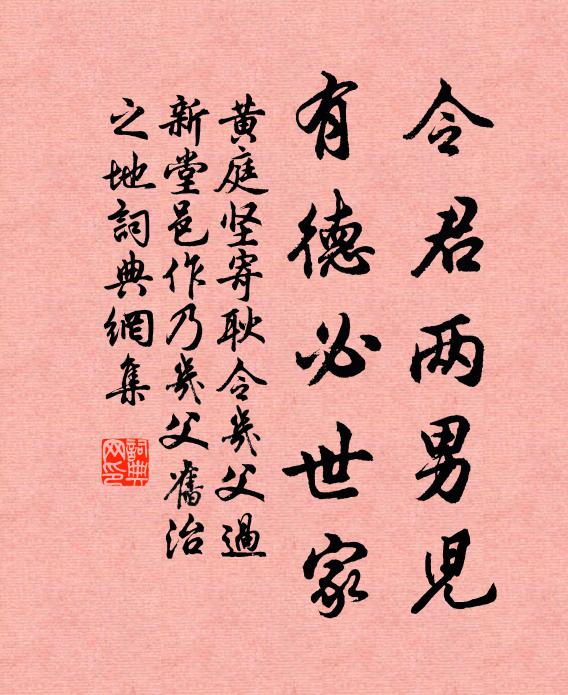 令君两男児
有德必世家
黄庭坚寄耿令几父過
新堂邑作乃几父舊治
之地詞典網集
詞典网印